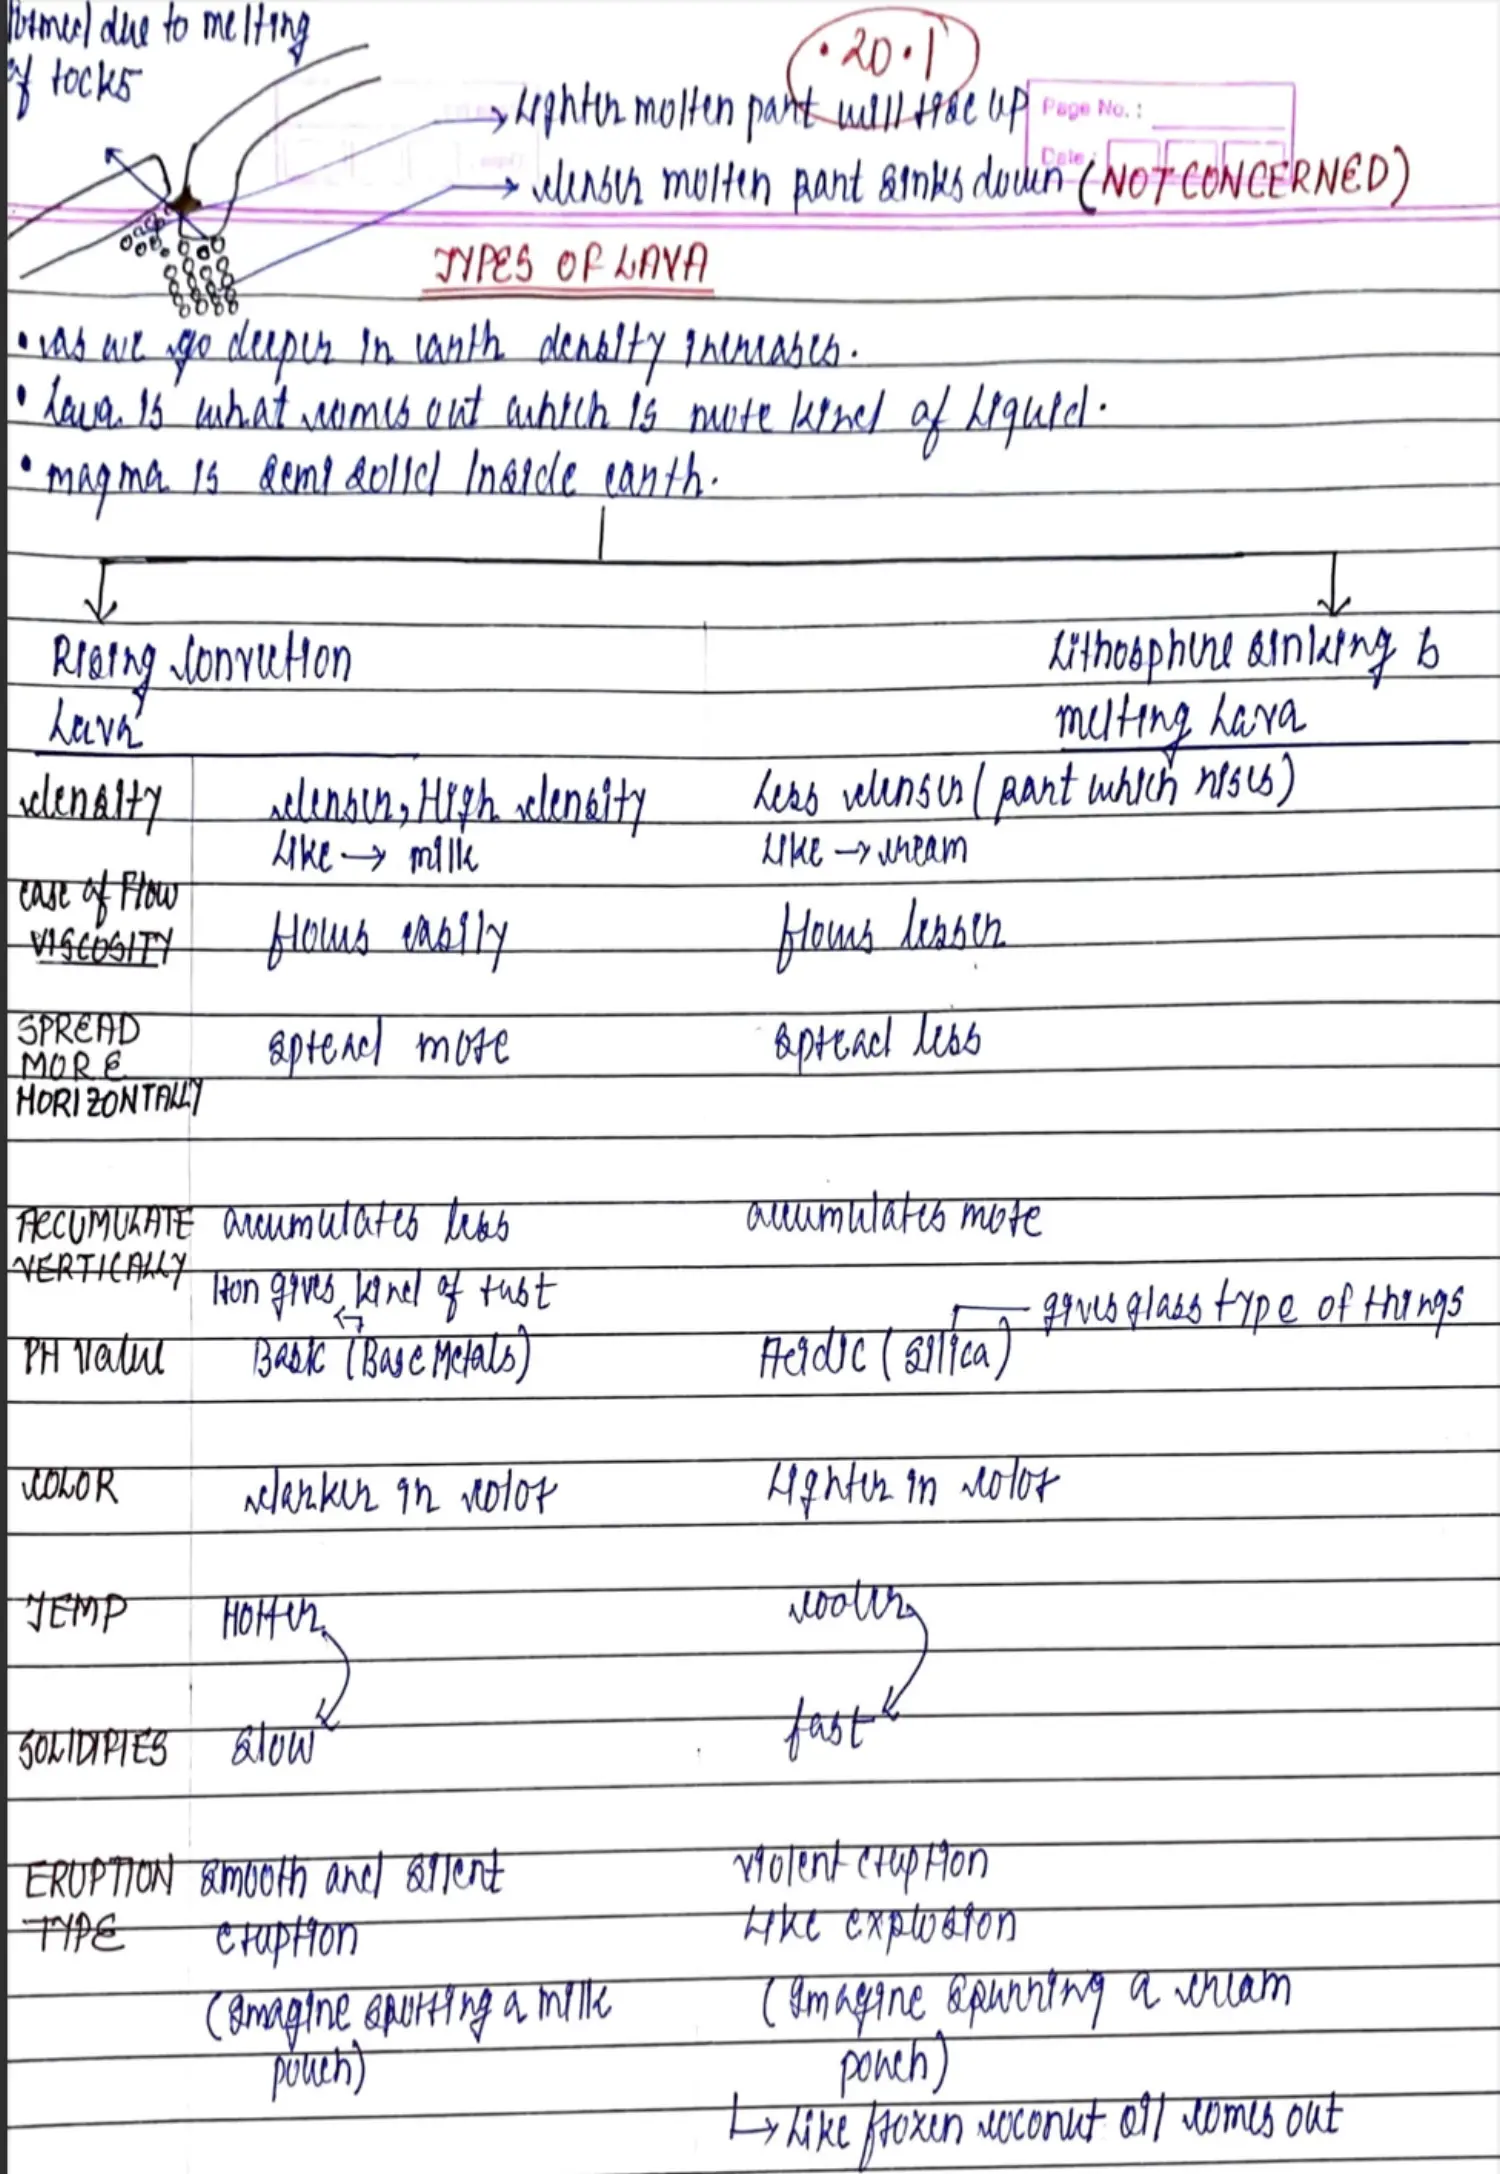 formed due to melting
of rocks
• 20 • 1
Page No. :
Date :
Lighter molten part will rise up
denser molten part sinks down (NOT CONCERNED)
TYPES OF LAVA
• as we go deeper in earth density increases.
• Lava is what comes out which is more kind of liquid.
• magma is semi solid inside earth.
Rising convection
Lava
Lithosphere sinking &
melting Lava
density denser, High density Less denser (part which rises)
Like → milk Like → cream
ease of Flow
VISCOSITY flows easily flows lesser
SPREAD
MORE
HORIZONTALLY spread more spread less
ACCUMULATE accumulates less accumulates more
VERTICALLY
Iron gives kind of rust gives glass type of things
PH Value Basic (Base Metals) Acidic (silica)
COLOR darker in color Lighter in color
TEMP Hotter cooler
SOLIDIFIES slow fast
ERUPTION smooth and silent violent eruption
TYPE eruption Like explosion
(imagine a milk (imagine a cream
pouch) pouch)
↳ Like frozen coconut oil comes out